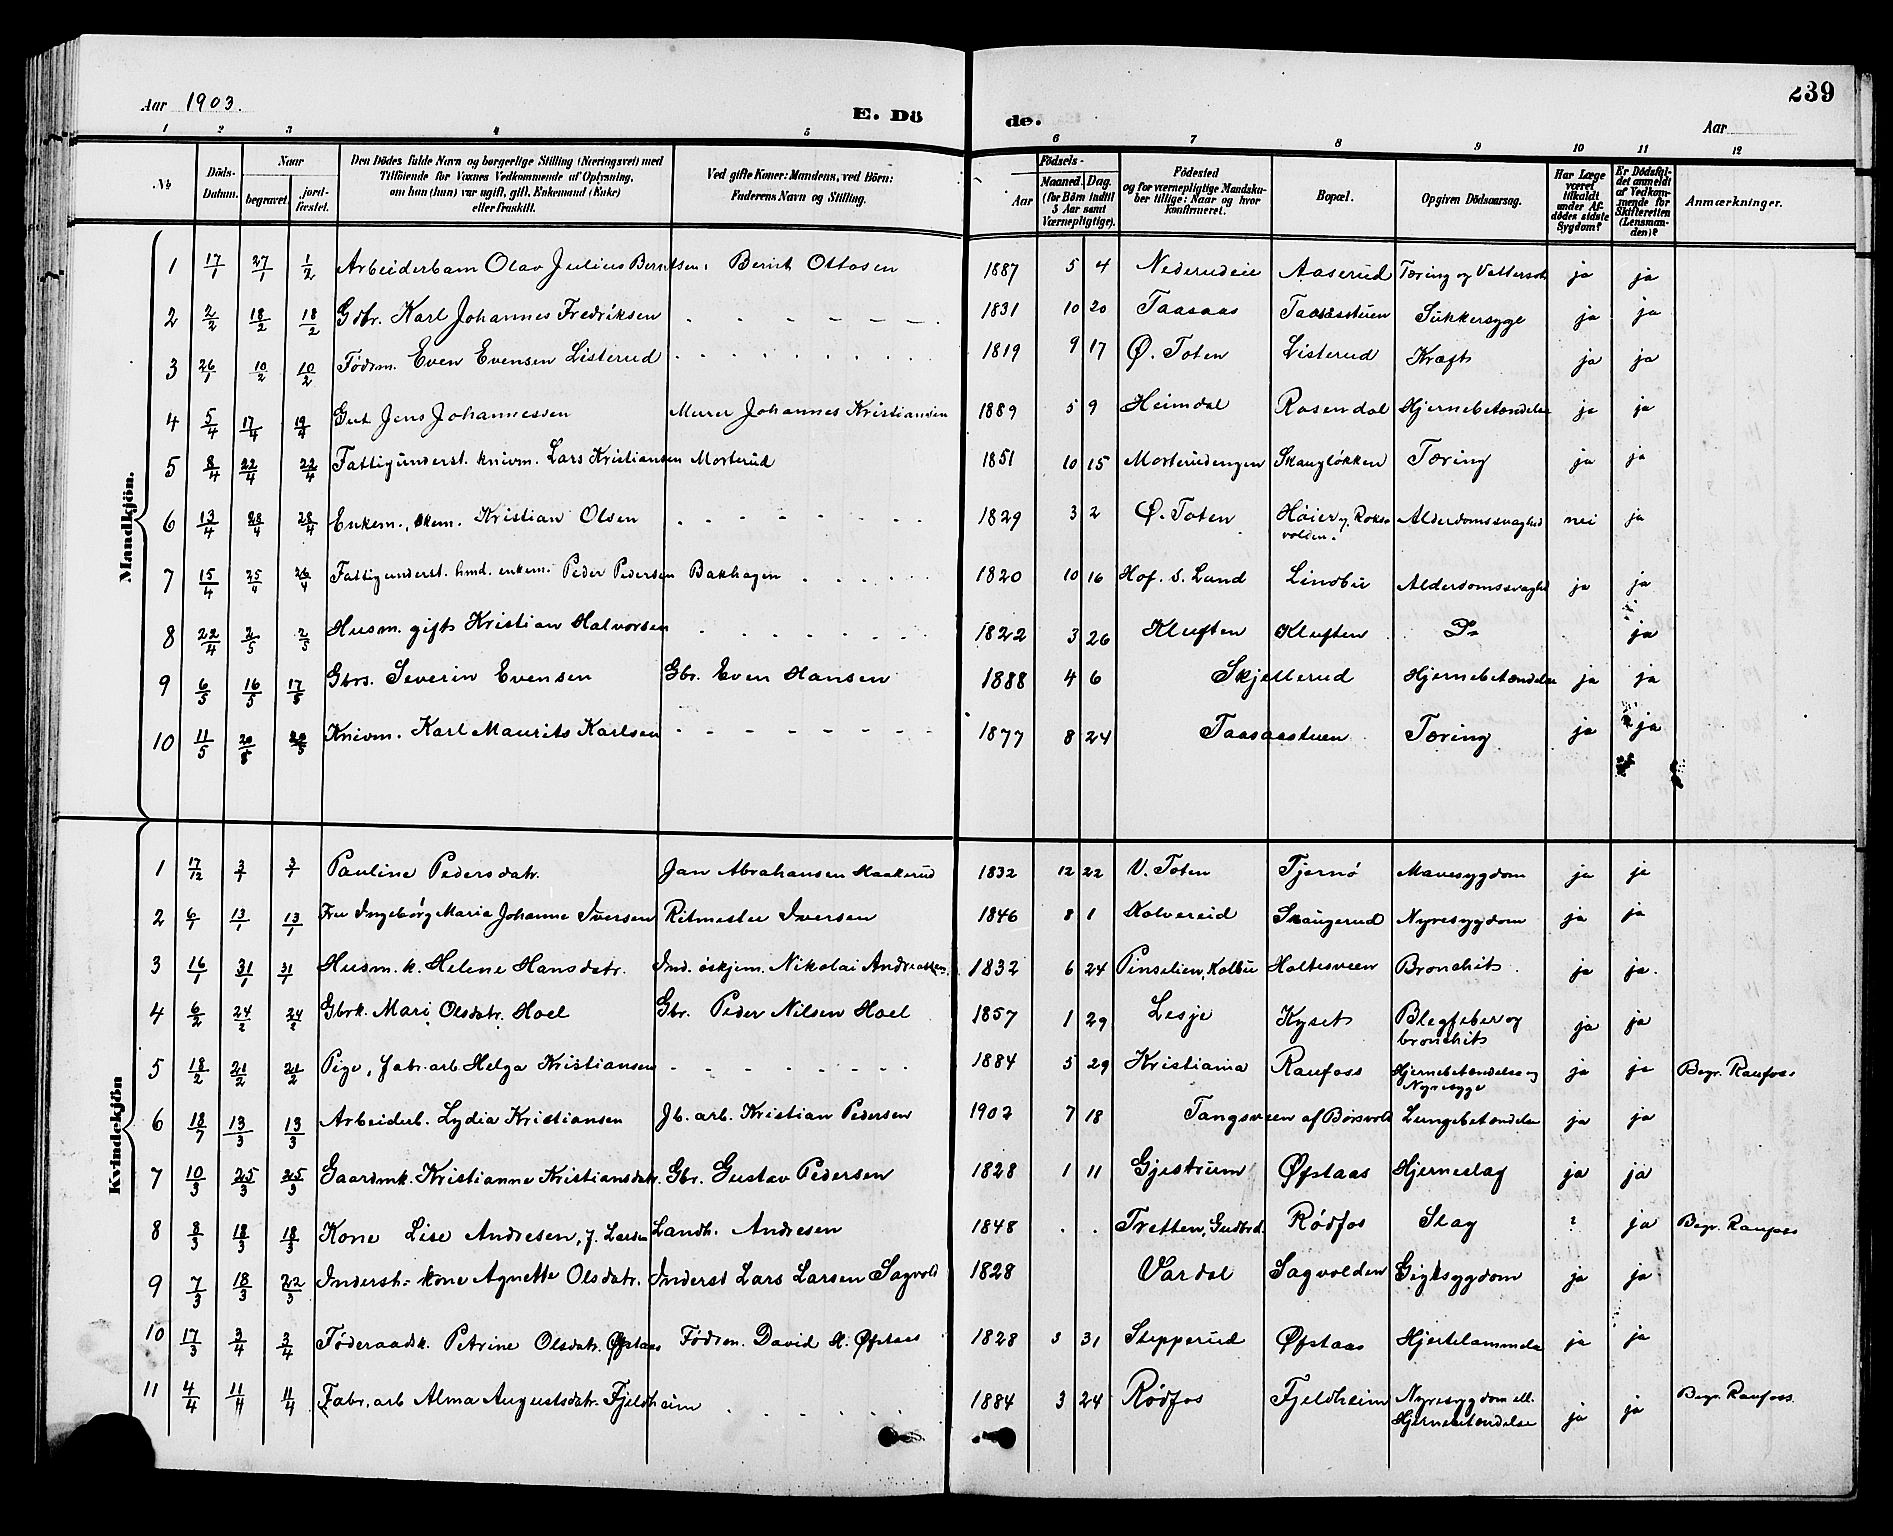 Aar 1903.
E. Dö
de.
239
Aar
1 2 3 4 5 6 7 8 9 10 11 12
№ Döds-Datum. Naar begravet. jord-fæstet. Den Dödes fulde Navn og borgerlige Stilling (Næringsvei) med Tilföiende for Voxnes Vedkommende af Oplysning, om han (hun) var ugift, gift, Enkemand (Enke) eller fraskilt. Ved gifte Koner: Mandens, ved Börn: Faderens Navn og Stilling. Födsels- Aar Maaned. Dag. (for Börn indtil 5 Aar samt Værnepligtige). Födested og for værnepligtige Mandskaber tillige: Naar og hvor konfirmeret. Bopæl. Opgiven Dödsaarsag. Har Læge været tilkaldt under Afdödes sidste Sygdom? Er Dödsfaldet anmeldt af Vedkommende for Skifteretten (Lensmanden)? Anmærkninger.
Mandkjön.
1 17/1 27/1 1/2 Arbeiderbarn Olav Julius Berntsen. Bernt Ottosen 1887 5 4 Nederudeie Aaserud Tæring og Vattersot ja ja
2 2/2 18/2 18/2 Gbr. Karl Johannes Fredriksen 1831 10 20 Taasaas Taasaastuen Sukkersyge ja ja
3 26/1 10/2 10/2 Födsm. Even Evensen Listerud 1819 9 17 Ø. Toten Listerud Kræft ja ja
4 5/4 17/4 19/4 Gut Jens Johannessen Murer Johannes Kristiansen 1889 5 9 Heimdal Rosendal Hjernebetændelse ja ja
5 8/4 22/4 22/4 Fattigunderst. knivm. Lars Kristiansen Morterud 1851 10 15 Morterudengen Skaugløkken Tæring ja ja
6 13/4 28/4 28/4 Enkem., skem. Kristian Olsen 1829 3 2 Ø. Toten Høier y. Roksvolden. Alderdomssvaghed nei ja
7 15/4 25/4 26/4 Fattigunderst. hmd. enkem. Peder Pedersen Bakhagen 1820 10 16 Hof. S. Land Lindbu Alderdomssvaghd ja ja
8 22/4 2/5 2/5 Husm. gift Kristian Halvorsen 1822 3 26 Kluften Kluften Do ja
9 6/5 16/5 17/5 Gbrs. Severin Evensen Gbr. Even Hansen 1888 4 6 Skjellerud Hjernebetændelse ja ja
10 11/5 20/5 20/5 Knivm. Karl Maurits Karlsen 1877 8 24 Taasaastuen Tæring ja ja
Kvindekjön
1 17/12 3/1 3/1 Pauline Pedersdatr. Jan Abrahansen Haakerud 1832 12 22 V. Toten Tjernø Mavesygdom ja ja
2 6/1 13/1 13/1 Fru Ingebörg Maria Johanne Iversen Ritmester Iversen 1846 8 1 Kolvereid Skaugerud Nyresygdom ja ja
3 16/1 31/1 31/1 Husm. k. Helene Hansdatr. Ind. øskjem. Nikolai Andreassen 1832 6 24 Pinselien, Kolbu Holtesveen Bronchit ja ja.
4 6/2 24/2 24/2 Gbrk. Mari Olsdatr. Hoel Gbr. Peder Nilsen Hoel 1857 1 29 Lesje Kyset Blegfeber og bronchit ja ja
5 18/2 21/2 21/2 Pige, fabr. arb Helga Kristiansen 1884 5 29 Kristiania Raufoss Hjernebetændelse og Nyresyge ja ja Begr. Raufoss
6 18/7 13/3 13/3 Arbeiderb. Lydia Kristiansen Jb. arb. Kristian Pedersen 1902 7 18 Tangsveen af Børsvold Lungebetændelse ja ja
7 10/3 25/3 25/3 Gaardmk. Kristianne Kristiansdatr. Gbr. Gustav Pedersen 1828 1 11 Gjestrum Øfstaas Hjerneslag ja ja
8 8/3 18/3 18/3 Kone Lise Andresen, f. Larsen Landh. Andresen 1848 . . Tretten, Gudbrd. Rødfos Slag ? ja Begr. Raufoss
9 7/3 18/3 22/3 Inderst.- kone Agnette Olsdatr. Inderst Lars Larsen Sagvold 1828 Vardal Sagvolden Gigtsygdom ja ja
10 17/3 3/4 3/4 Føderaadsk. Petrine Olsdatr. Øfstaas Födsm. David H. Øfstaas 1828 3 31 Stepperud Øfstaas Hjertelammelse ja ja
11 4/4 11/4 11/4 Fabr. arb Alma Augustsdatr. Fjeldheim 1884 3 24 Rødfos Fjeldheim Nyresygdom ell. Hjernebetændelse ja ja Begr. Raufoss.